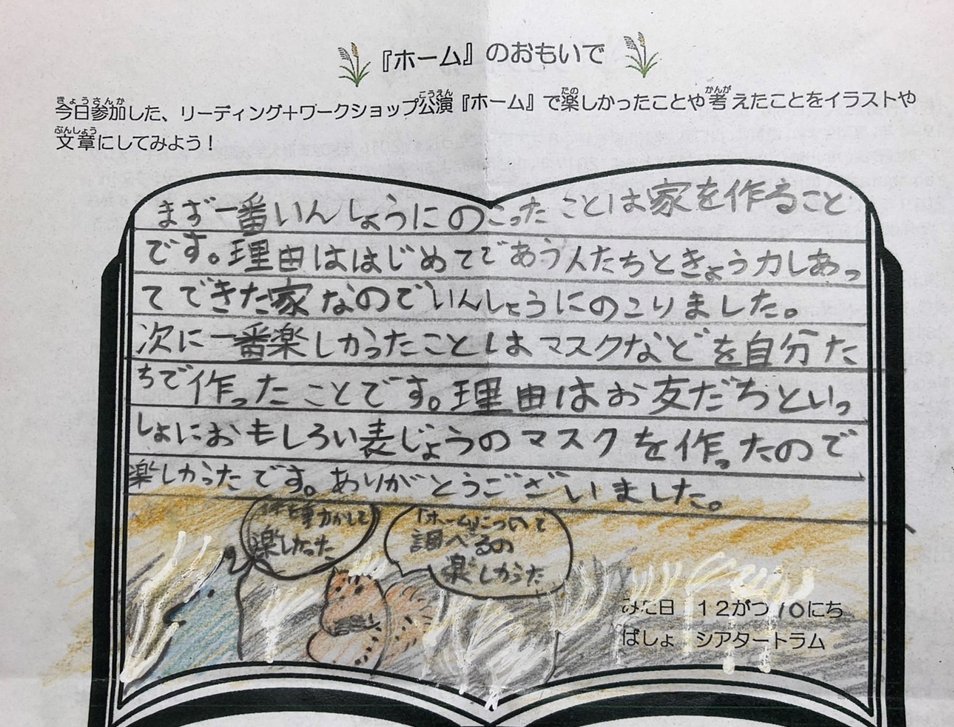 『ホーム』のおもいで
今日参加した、リーディング+ワークショップ公演『ホーム』で楽しかったことや考えたことをイラストや
文章にしてみよう!
まず一番いんしょうにのこったことは家を作ること
です。理由ははじめてであう人たちときょう力しあっ
てできた家なのでいんしょうにのこりました。
次に一番楽しかったことはマスクなどを自分た
ちで作ったことです。理由はお友だちといっ
しょにおもしろい表じょうのマスクを作ったので
楽しかったです。ありがとうございました。
体を動かして
楽しかった
「ホーム」について
調べるの
楽しかった
みた日 12がつ10にち
ばしょ シアタートラム